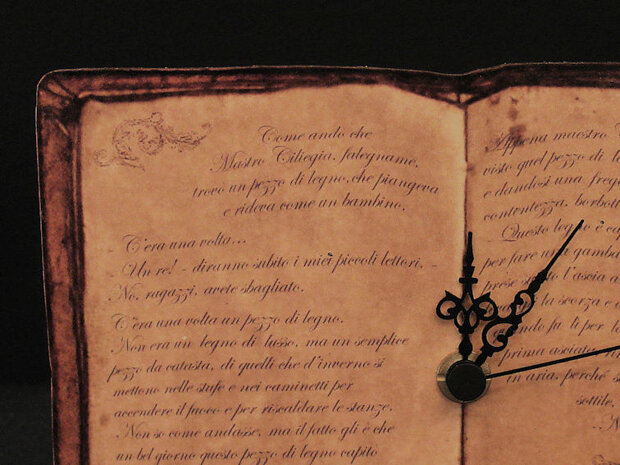 Come andò che
Mastro Ciliegia, falegname,
trovò un pezzo di legno, che piangeva
e rideva come un bambino.
C'era una volta...
- Un re! - diranno subito i miei piccoli lettori. -
No, ragazzi, avete sbagliato.
C'era una volta un pezzo di legno.
Non era un legno di lusso, ma un semplice
pezzo da catasta, di quelli che d'inverno si
mettono nelle stufe e nei caminetti per
accendere il fuoco e per riscaldare le stanze.
Non so come andasse, ma il fatto gli è che
un bel giorno questo pezzo di legno capitò
Appena maestro
visto quel pezzo di
e dandosi una
contentezza,
- Questo legno è
per fare una gamba
prese subito l'ascia
la scorza e
quando fu lì per
prima
in aria, perché
sottile,
Non